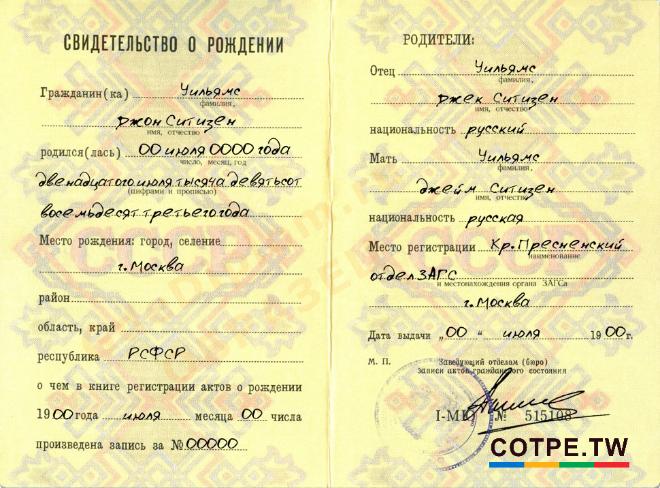 СВИДЕТЕЛЬСТВО О РОЖДЕНИИ
Гражданин(ка) Уильямс
фамилия,
Джон Ситизен
имя, отчество
родился(лась) 00 июля 0000 года
число, месяц, год
двенадцатого июля тысяча девятьсот
(цифрами и прописью)
восемьдесят третьего года
Место рождения: город, селение
г. Москва
район
область, край
республика РСФСР
о чем в книге регистрации актов о рождении
1900 года июля месяца 00 числа
произведена запись за № 00000
РОДИТЕЛИ:
Отец Уильямс
фамилия,
Джек Ситизен
имя, отчество
национальность русский
Мать Уильямс
фамилия,
Джейм Ситизен
имя, отчество
национальность русская
Место регистрации Кр. Пресненский
наименование
отдел ЗАГС
и местонахождения органа ЗАГСа
г. Москва
Дата выдачи „00" июля 1900г.
М. П. Заведующий отделом (бюро)
записи актов гражданского состояния
№ 515108
COTPE.TW